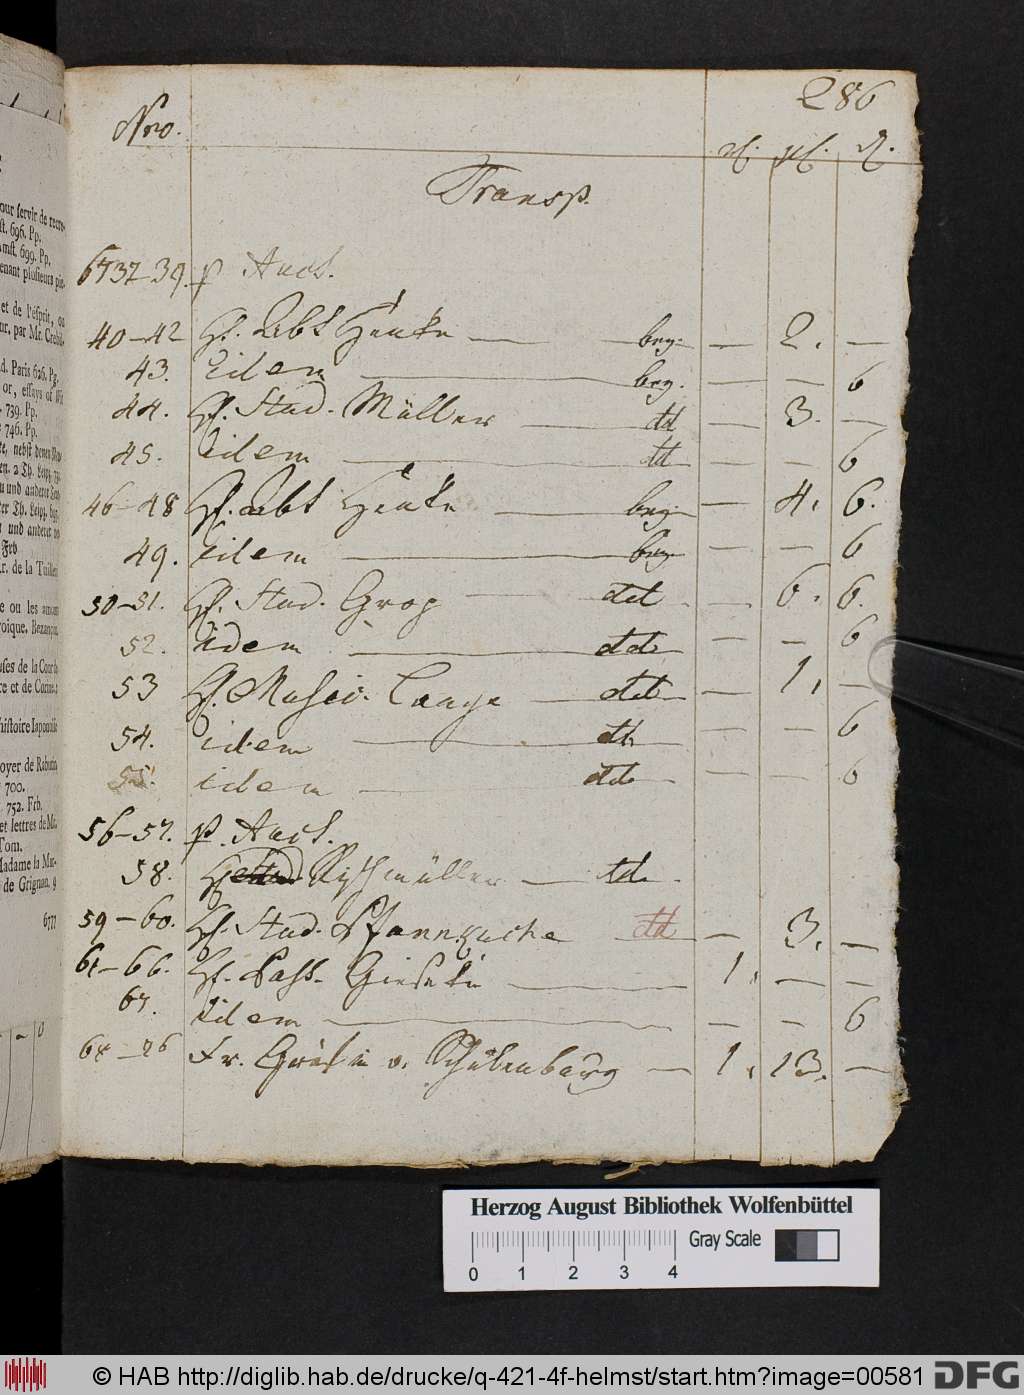 286
Nro.
Transp.
6737-39. p Auct.
40-42 H. Abt Henke — bez. — 2. —
43. Eidem — bez. — — 6
44. H. Stud. Müller — dt — 3. —
45. Eidem — dt — — 6
46-48 H. Abt Henke — bez. — 4. 6.
49. Eidem — bez — — 6
50-51. H. Stud. Grop — ddt — 6. 6.
52. idem — ddt — — 6
53 H. Lange — ddt — 1. —
54. idem — dt — — 6
55. idem — ddt — — 6
56-57. p. Auct.
58. H. müller — dd
59-60. H. Stud. Pfannkuche dt — 3. —
61-66. H. Past. Gieseke — 1. — —
67. Eidem — — — 6
68-76 Fr. Gräfin v. Schulenburg — 1. 13. —
our servir de recre-
st. 696. Pp.
Amst. 699. Pp.
enant plusieurs pie-
et de l'esprit, ou
ur, par Mr. Crebil-
d. Paris 626. Pg.
or, essays of Wit
. 739. Pp.
746. Pp.
r. de la Tuiller
e ou les amans
roique. Bezançon,
uses de la Cour de
re et de Corne-
histoire Iaponoise
oyer de Rabutin
700.
752. Frb.
et lettres de Mr.
Tom.
Madame la Mar-
de Grignan. 9
6777
Herzog August Bibliothek Wolfenbüttel
Gray Scale
0 1 2 3 4
© HAB http://diglib.hab.de/drucke/q-421-4f-helmst/start.htm?image=00581 DFG